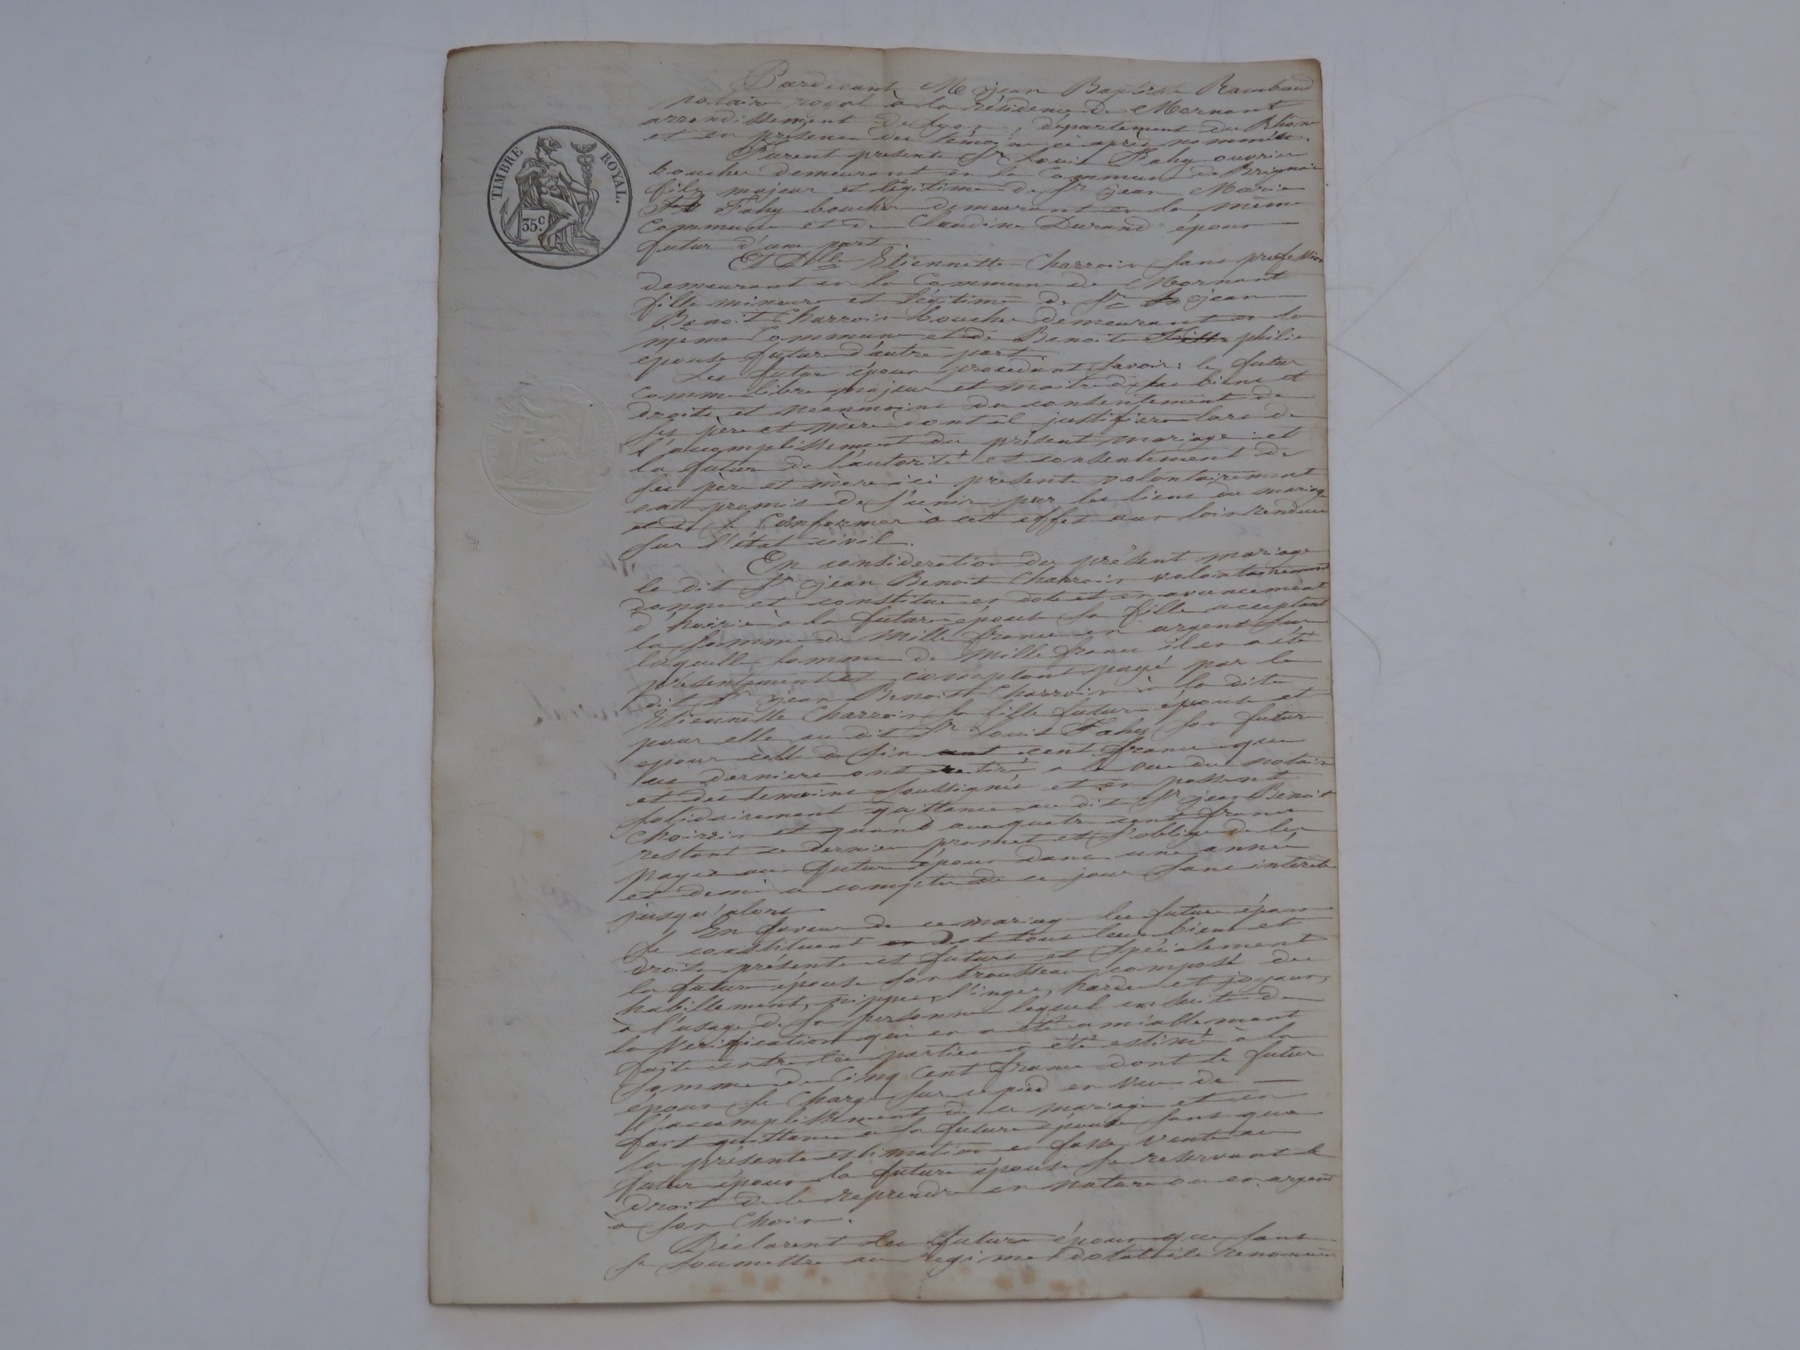 TIMBRE ROYAL.
35c.
Pardevant Me jean Baptiste Rambaud
notaire royal à la résidence de Mornant
arrondissement de Lyon, département du Rhône
et en présence des témoins ci après nommés.
Furent présents Sr Louis Fahy ouvrier
boucher demeurant en la Commune de Brignais
fils majeur et légitime de Sr jean Marie
Fahy boucher demeurant en la même
Commune et de Claudine Durand époux
futur d'une part.
Et Dlle Etiennette Charroin sans profession
demeurant en la Commune de Mornant
fille mineure et légitime de Sr jean
Benoit Charroin boucher demeurant en la
même Commune et de Benoite philis
épouse future d'autre part.
Les futurs époux procedant savoir: le futur
Comme libre majeur et maitre de ses biens et
droits et néanmoins du consentement de
ses père et mère dont il justifiera lors de
l'accomplissement du présent mariage et
la future de l'autorité et consentement de
ses père et mère ici présents volontairement
ont promis de s'unir par les liens du mariage
et de se Conformer à cet effet aux loix rendues
sur l'état civil.
En considération du présent mariage
le dit Sr jean Benoit Charroin volontairement
donne et constitue en dot et en avancement
d'hoirie à la future épouse sa fille acceptant
la somme de Mille francs en argent sur
laquelle somme de Mille francs il en a été
présentement et comptant payé par le
dit Sr jean Benoit Charroin à la dite
Etiennette Charroin sa fille future épouse et
pour elle au dit Sr Louis Fahy son futur
époux celle de six cent francs que
ces derniers ont retiré à la vue du notaire
et des temoins soussignés et en passent
solidairement quittance au dit Sr jean Benoit
Charroin et quand aux quatre cent francs
restant ce dernier promet et s'oblige de les
payer aux futurs époux dans une année
et demi à compter de ce jour sans intérêts
jusqu'alors.
En faveur de ce mariage les futurs époux
se constituent en dot tous leurs biens et
droits présents et futurs et spécialement
la future épouse son trousseau composé des
habillements, nippes, linges, hardes et joyaux,
à l'usage de sa personne lequel en suite de
la Vérification qui en a été amiablement
faite entre les parties a été estimé à la
somme de Cinq Cent francs dont le futur
époux se charge sur ce pied en vue de
l'accomplissement de ce mariage et en
fait quittance à sa future épouse sans que
la présente estimation en fasse Vente au
futur époux la future épouse se réservant le
droit de le reprendre en nature ou en argent
à son Choix.
Déclarent les futurs époux que sans
se soumettre au régime dotal ils renoncent